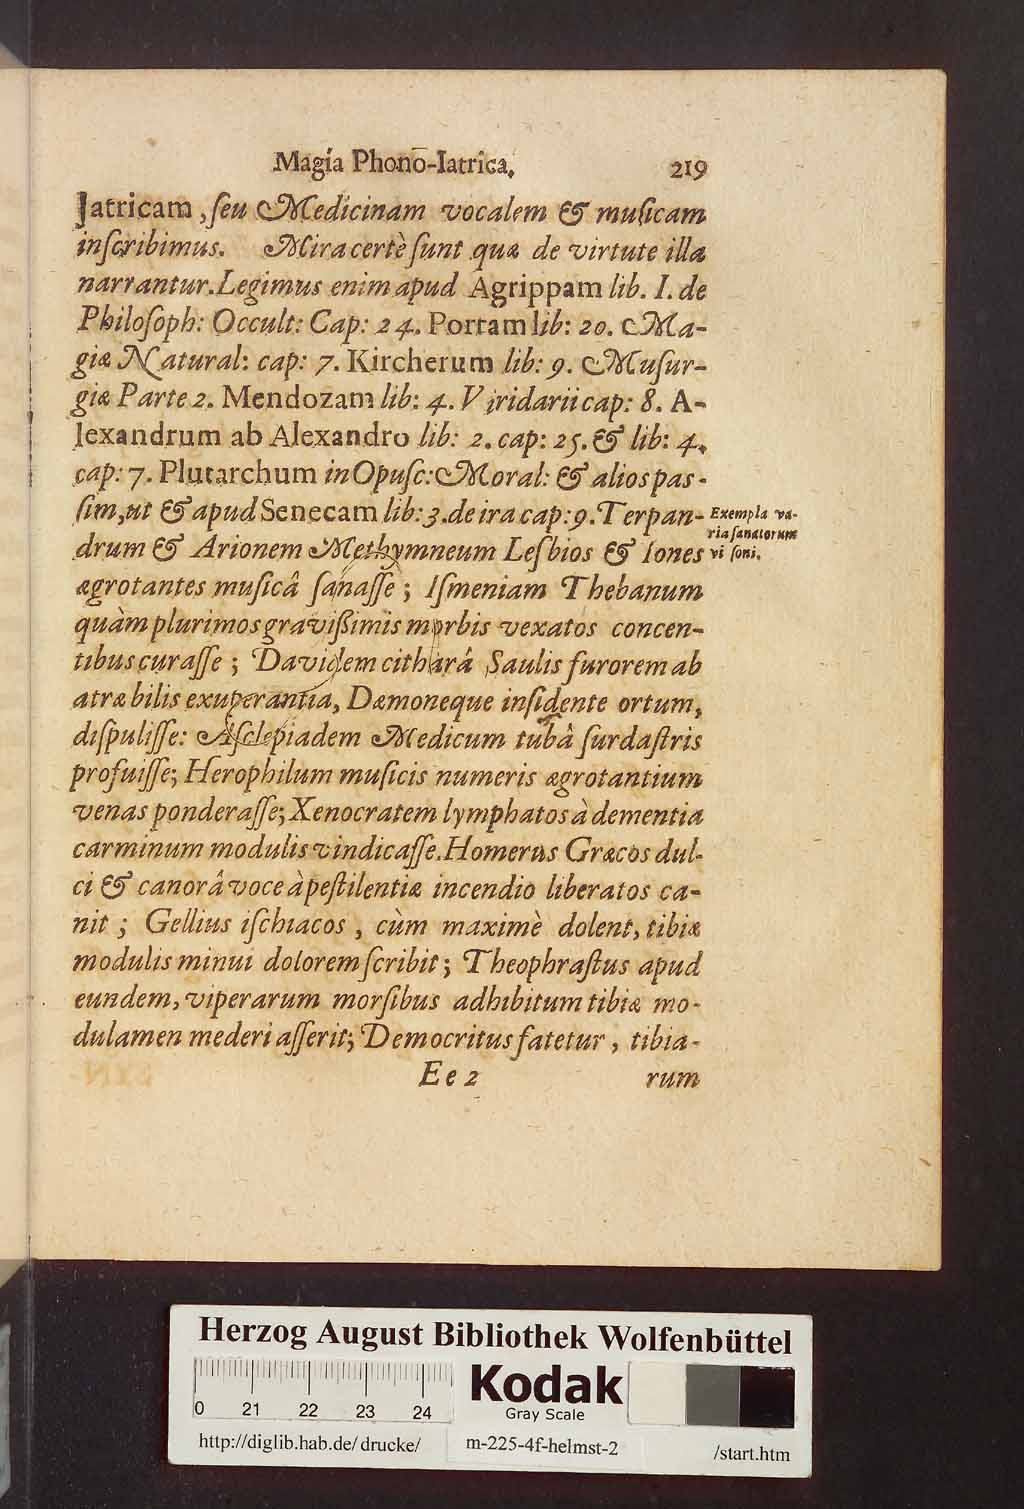 Magia Phono-Iatrica. 219
Jatricam, ſeu Medicinam vocalem & muſicam
inſcribimus. Mira certè ſunt quæ de virtute illa
narrantur. Legimus enim apud Agrippam lib. I. de
Philoſoph: Occult: Cap: 24. Portam lib: 20. Ma-
giæ Natural: cap: 7. Kircherum lib: 9. Muſur-
giæ Parte 2. Mendozam lib: 4. Viridarii cap: 8. A-
lexandrum ab Alexandro lib: 2. cap: 25. & lib: 4.
cap: 7. Plutarchum in Opuſc: Moral: & alios paſ-
ſim, ut & apud Senecam lib: 3. de ira cap: 9. Terpan-
drum & Arionem Methymneum Leſbios & Iones
ægrotantes muſicâ ſanaſſe; Iſmeniam Thebanum
quàm plurimos gravißimis morbis vexatos concen-
tibus curaſſe; Davidem citharâ Saulis furorem ab
atræ bilis exuperantia, Dæmoneque inſidente ortum,
diſpuliſſe: Aſclepiadem Medicum tubâ ſurdaſtris
profuiſſe; Herophilum muſicis numeris ægrotantium
venas ponderaſſe; Xenocratem lymphatos à dementia
carminum modulis vindicaſſe. Homerus Græcos dul-
ci & canorâ voce à peſtilentiæ incendio liberatos ca-
nit; Gellius iſchiacos, cùm maximè dolent, tibiæ
modulis minui dolorem ſcribit; Theophraſtus apud
eundem, viperarum morſibus adhibitum tibiæ mo-
dulamen mederi aſſerit; Democritus fatetur, tibia-
Ee 2 rum
Exempla va-
ria ſanatorum
vi ſoni.
Herzog August Bibliothek Wolfenbüttel
Kodak
Gray Scale
0 21 22 23 24
http://diglib.hab.de/drucke/ m-225-4f-helmst-2 /start.htm